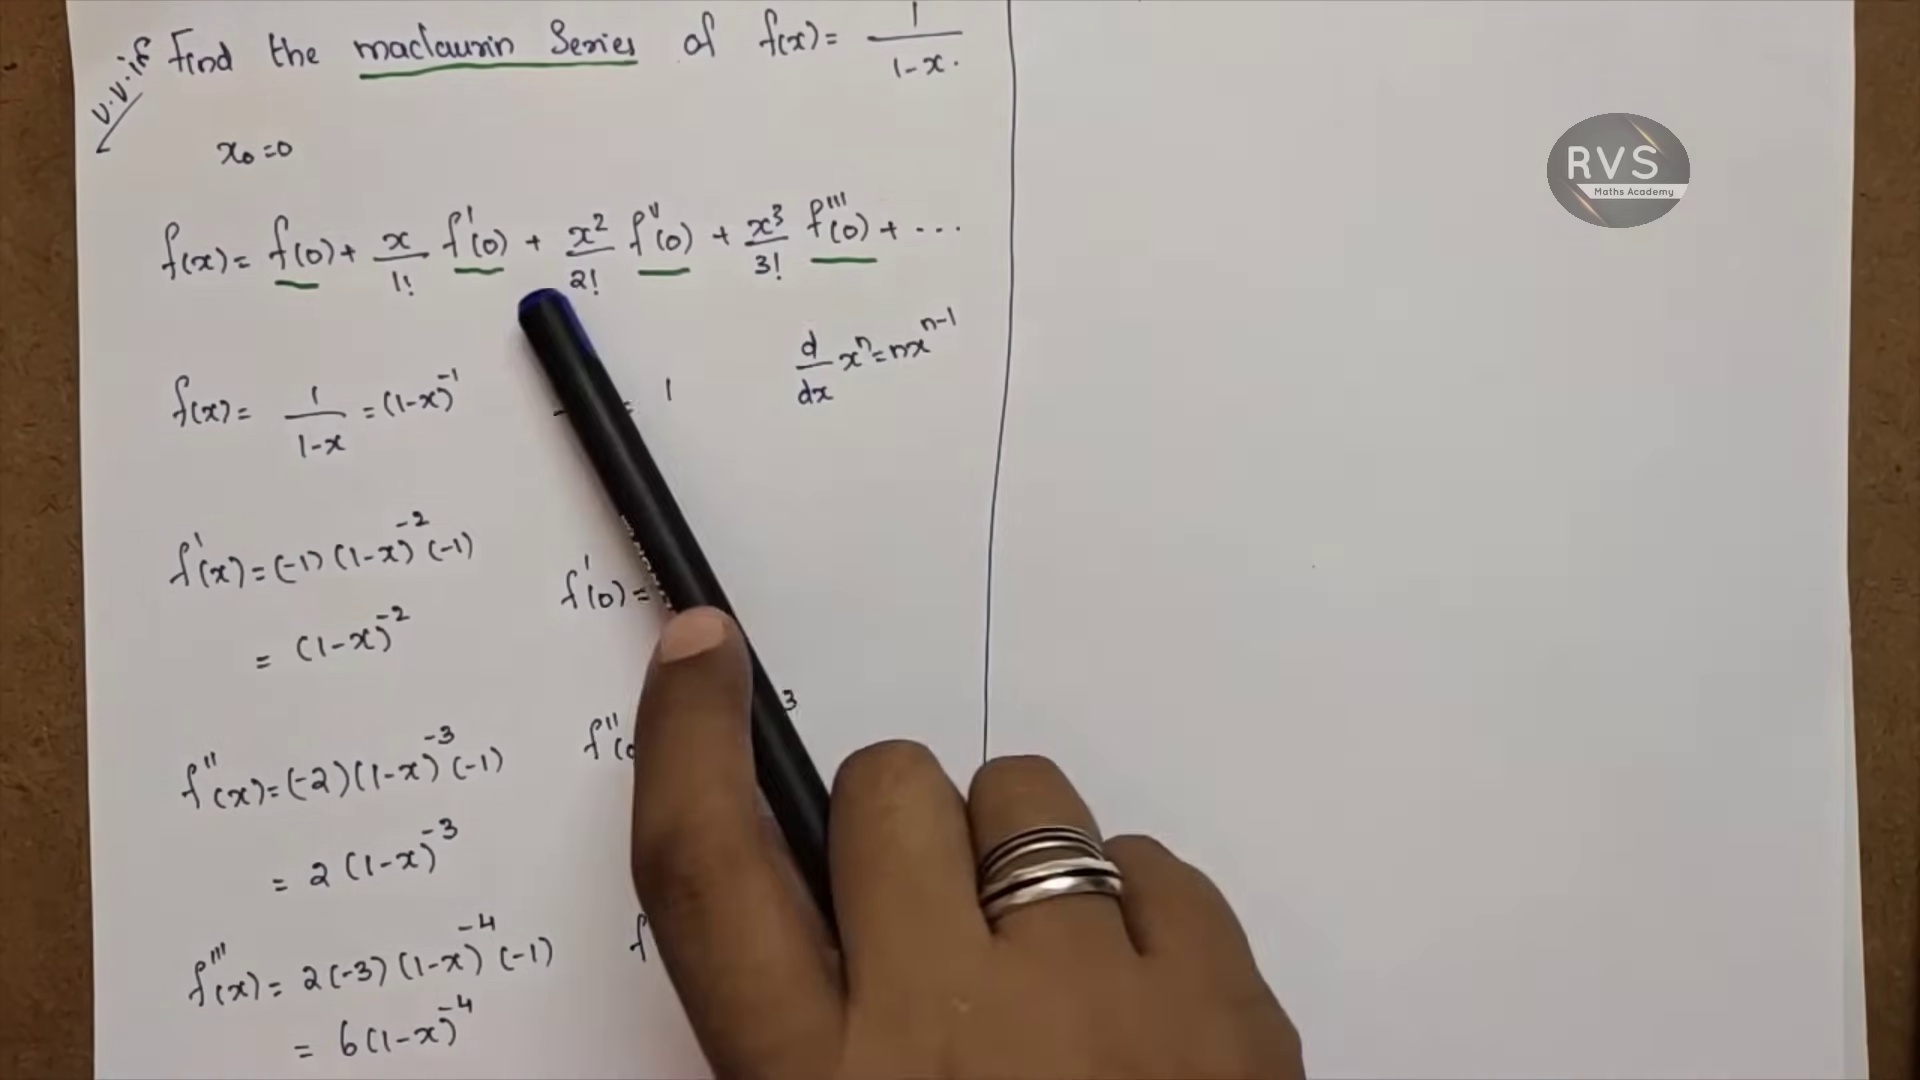 v.v.if
Find the maclaurin Series of f(x) = 1/1-x.
x₀=0
f(x) = f(0) + x/1! f'(0) + x²/2! f''(0) + x³/3! f'''(0) + ...
d/dx xⁿ = nxⁿ⁻¹
f(x) = 1/1-x = (1-x)⁻¹ = 1
f'(x) = (-1) (1-x)⁻² (-1) f'(0) =
= (1-x)⁻²
f''(x) = (-2) (1-x)⁻³ (-1) f''(0 3
= 2 (1-x)⁻³
f'''(x) = 2 (-3) (1-x)⁻⁴ (-1) f
= 6 (1-x)⁻⁴
RVS
Maths Academy